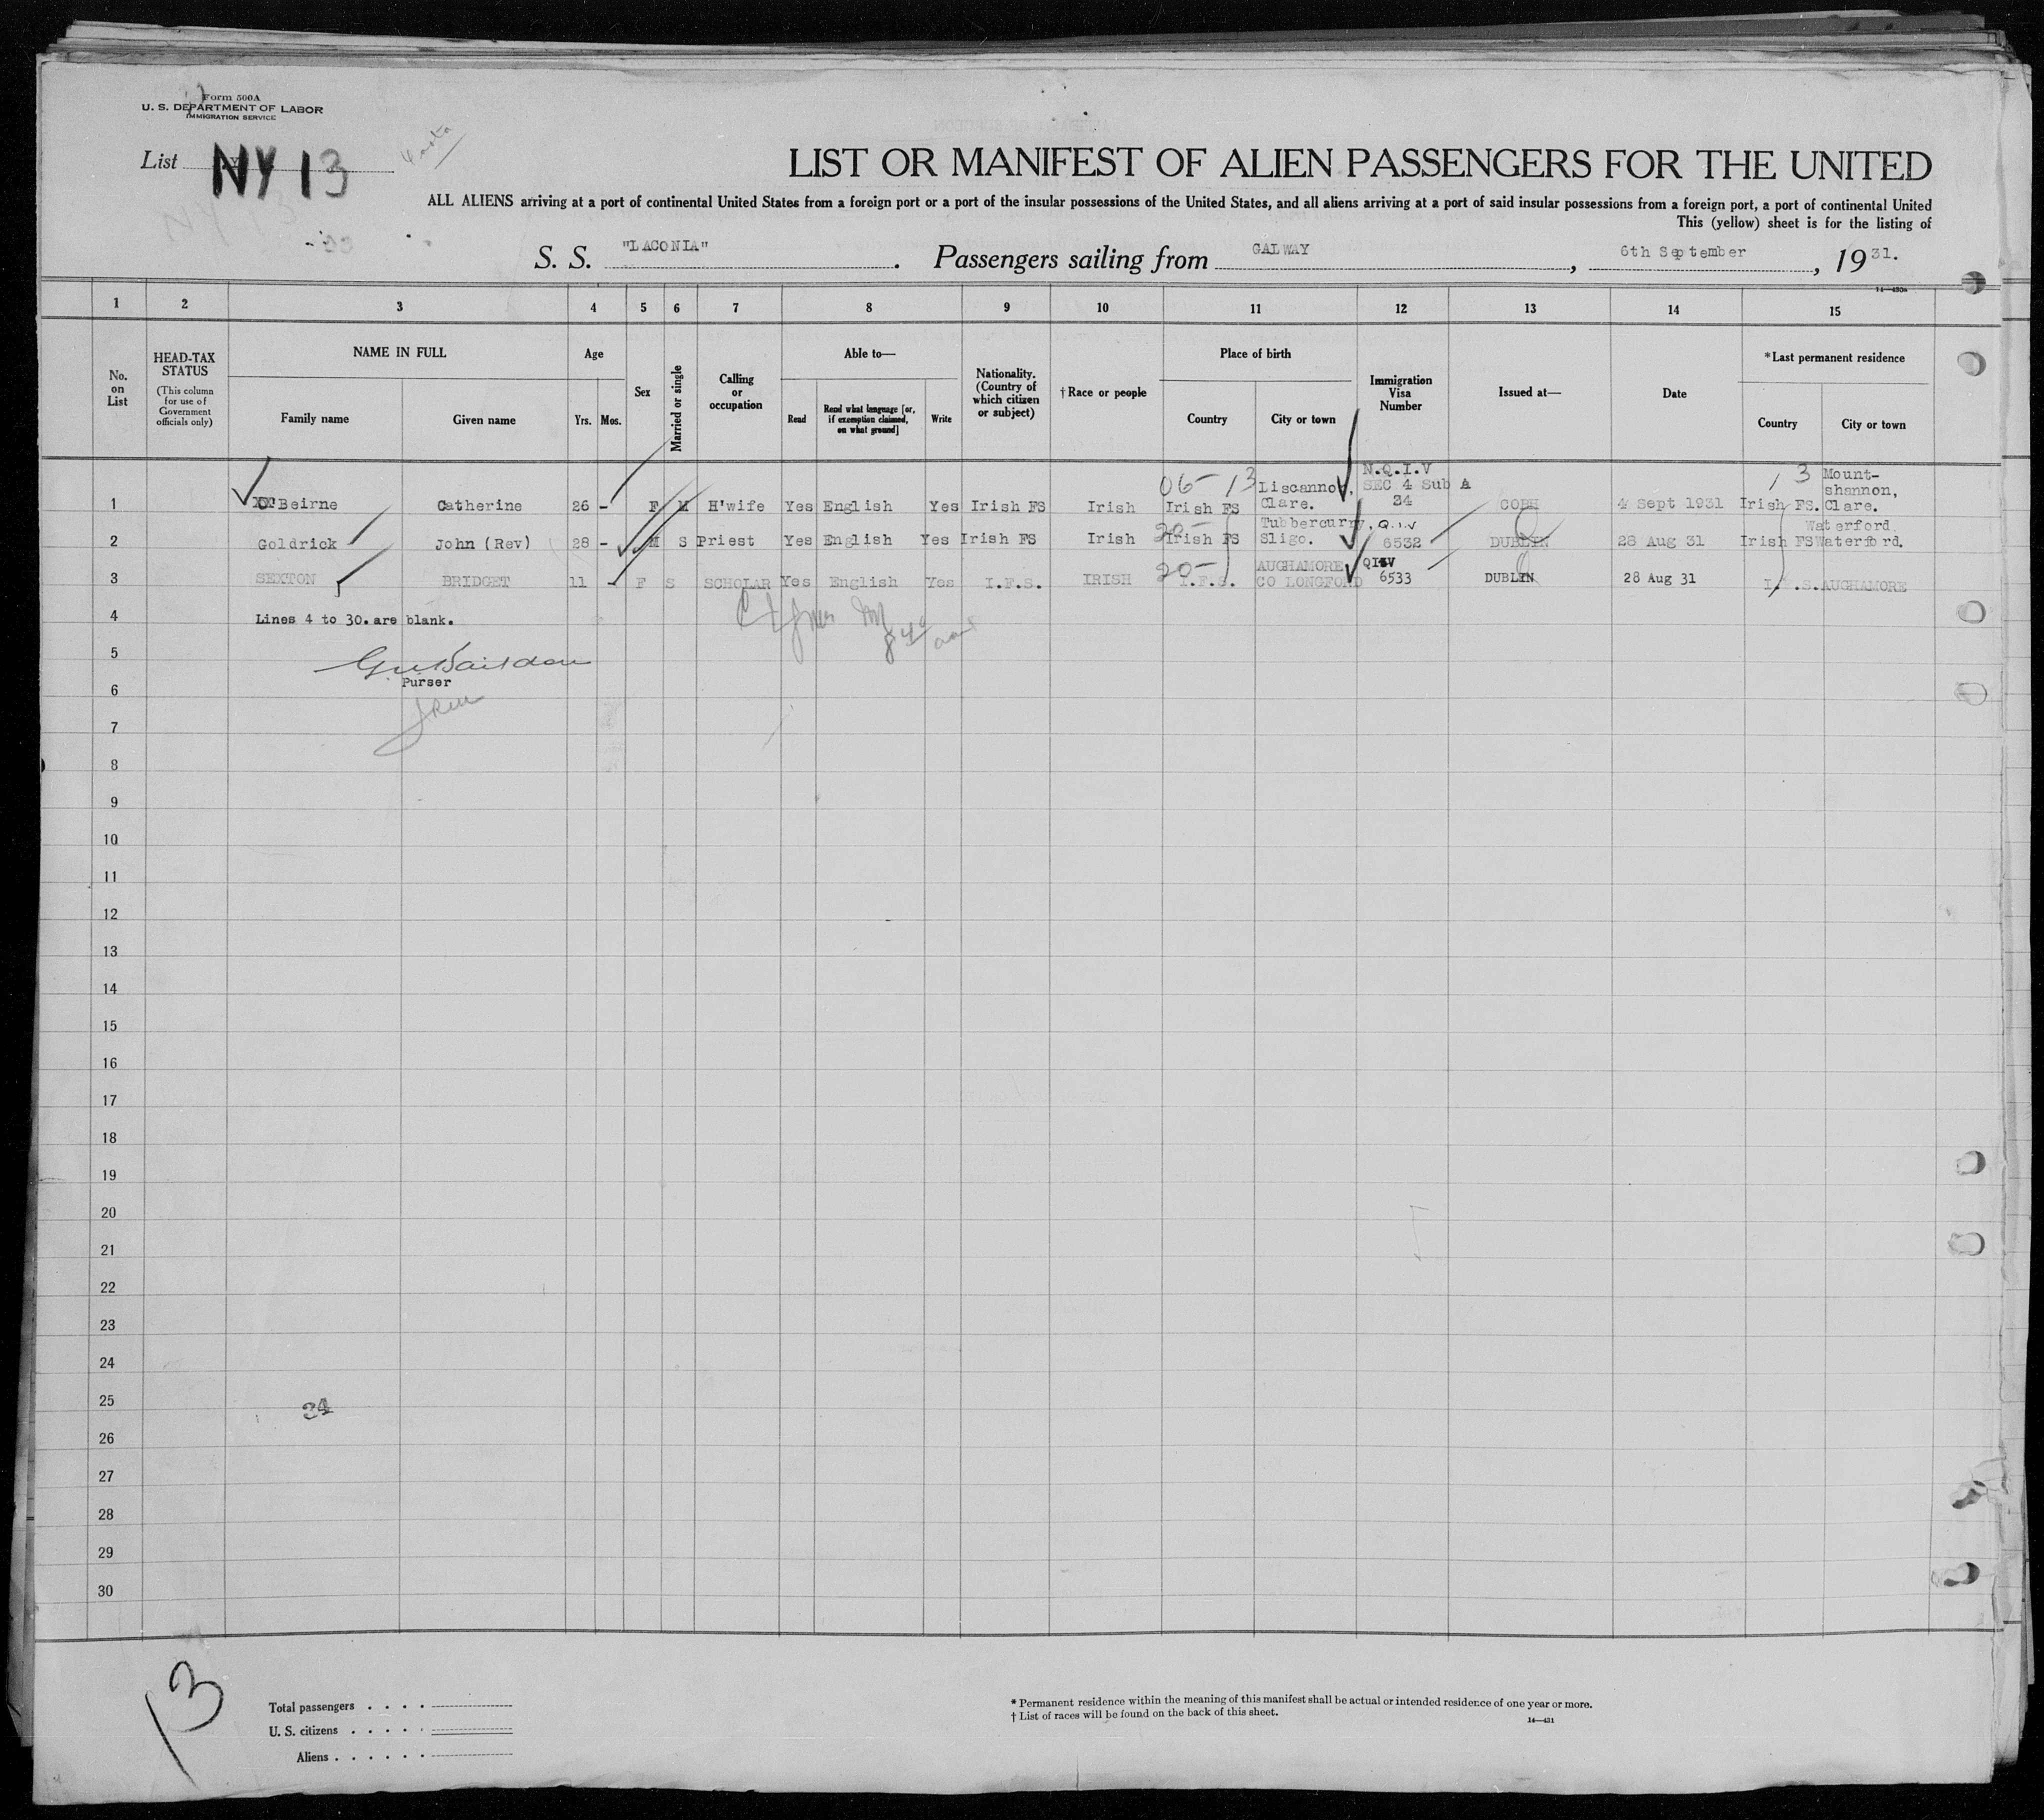 Form 500A
U. S. DEPARTMENT OF LABOR
IMMIGRATION SERVICE
List NY 13
LIST OR MANIFEST OF ALIEN PASSENGERS FOR THE UNITED
ALL ALIENS arriving at a port of continental United States from a foreign port or a port of the insular possessions of the United States, and all aliens arriving at a port of said insular possessions from a foreign port, a port of continental United
This (yellow) sheet is for the listing of
S. S. "LACONIA". Passengers sailing from GALWAY, 6th September, 1931.
1 2 3 4 5 6 7 8 9 10 11 12 13 14 15
No. on List
HEAD-TAX STATUS
(This column for use of Government officials only)
NAME IN FULL
Family name
Given name
Age
Yrs. Mos.
Sex
Married or single
Calling or occupation
Able to—
Read
Read what language [or, if exemption claimed, on what ground]
Write
Nationality. (Country of which citizen or subject)
† Race or people
Place of birth
Country
City or town
Immigration Visa Number
Issued at—
Date
*Last permanent residence
Country
City or town
1 O'Beirne Catherine 26 - F M H'wife Yes English Yes Irish FS Irish 06- 13 Irish FS Liscannor, Clare. N.Q.I.V SEC 4 Sub A 24 COBH 4 Sept 1931 Irish FS. 13 Mount-shannon, Clare.
2 Goldrick John (Rev) 28 - M S Priest Yes English Yes Irish FS Irish 20- Irish FS Tubbercurry, Sligo. Q.I.V 6532 DUBLIN 28 Aug 31 Irish FS Waterford Waterford.
3 SEXTON BRIDGET 11 - F S SCHOLAR Yes English Yes I.F.S. IRISH 20- I.F.S. AUGHAMORE CO LONGFORD QIV 6533 DUBLIN 28 Aug 31 I. .S. AUGHAMORE
4 Lines 4 to 30. are blank.
5
Purser
6
7
8
9
10
11
12
13
14
15
16
17
18
19
20
21
22
23
24
25
26
27
28
29
30
13
Total passengers . . . .
U. S. citizens . . . . .
Aliens . . . . . .
* Permanent residence within the meaning of this manifest shall be actual or intended residence of one year or more.
† List of races will be found on the back of this sheet.
14—431